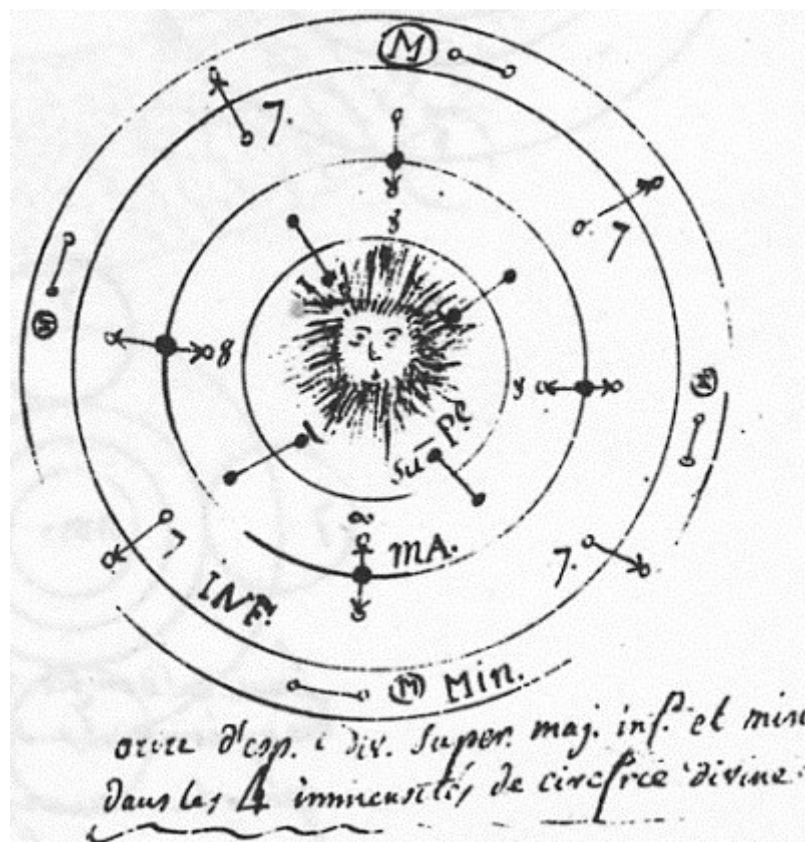 M
7.
7
8
8
8
M
M
su-pe
∞
MA.
7
7.
INF.
M Min.
d'esp. div. super. maj. inf. et min
dans les 4 immensités de circfrce divine